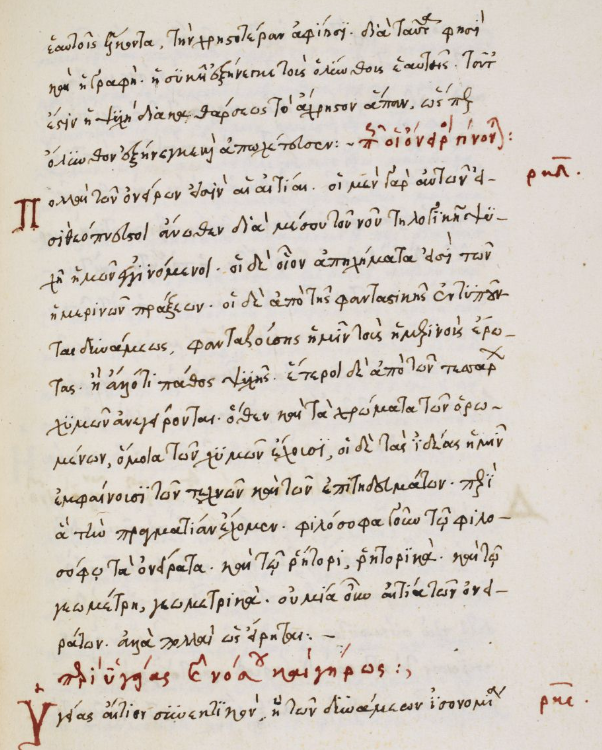 ἑαυτοῖς ἕλκοντα, τὴν χρηστοτέραν ἀφίησι· διὰ ταῦτα φησὶ
καὶ ἡ γραφή. ἡ συκῆ ἐξήνεγκε τοὺς ὀλύνθους ἑαυτῆς. τουτ
ἔστιν ἡ ψυχὴ διὰ καθάρσεως τὸ ἄχρηστον ἅπαν, ὡς περ
ὄλυνθον ἐξήνεγκε :~ οἱ ὄνειροι γίνονται:
ρκδ.
Πολλαὶ τῶν ὀνείρων εἰσὶν αἱ αἰτίαι. οἱ μὲν γὰρ αὐτῶν εἰ-
σὶ θεόπνευστοι ἄνωθεν διὰ μέσου τοῦ νοῦ τῇ λογικῇ ψυ-
χῇ ἡμῶν ἐγγινόμενοι. οἱ δὲ οἷον ἀπηχήματα εἰσὶ τῶν
ἡμερινῶν πράξεων. οἱ δὲ ἀπὸ τῆς φανταστικῆς ἐντυποῦν
ται δυνάμεως, φανταζούσης ἡμῖν τοὺς ἡμερινοὺς ἔρω-
τας. ἢ ἄλλό τι πάθος ψυχῆς. ἕτεροι δὲ ἀπὸ τῶν τεσσάρων
χυμῶν ἀνεγείρονται. ὅθεν καὶ τὰ χρώματα τῶν ὁρω-
μένων, ὅμοια τῶν χυμῶν ἔχουσι, οἱ δὲ τὰς ἰδέας ἡμῖν
ἐμφαίνουσι τῶν τεχνῶν καὶ τῶν ἐπιτηδευμάτων. περὶ
ἃ τὴν πραγματίαν ἔχομεν. φιλόσοφα γοῦν τῷ φιλο-
σόφῳ τὰ ὀνείρατα. καὶ τῷ ῥήτορι, ῥητορικά. καὶ τῷ
γεωμέτρῃ, γεωμετρικά. οὐ μία οὖν αἰτία τῶν ὀνει-
ράτων. ἀλλὰ πολλαὶ ὡς εἴρηται:~
περὶ ὑγείας καὶ νόσου καὶ γήρως:
Ὑγείας αἴτιον συνεκτικὸν, ἡ τῶν δυνάμεων ἰσονομία
ρκε.